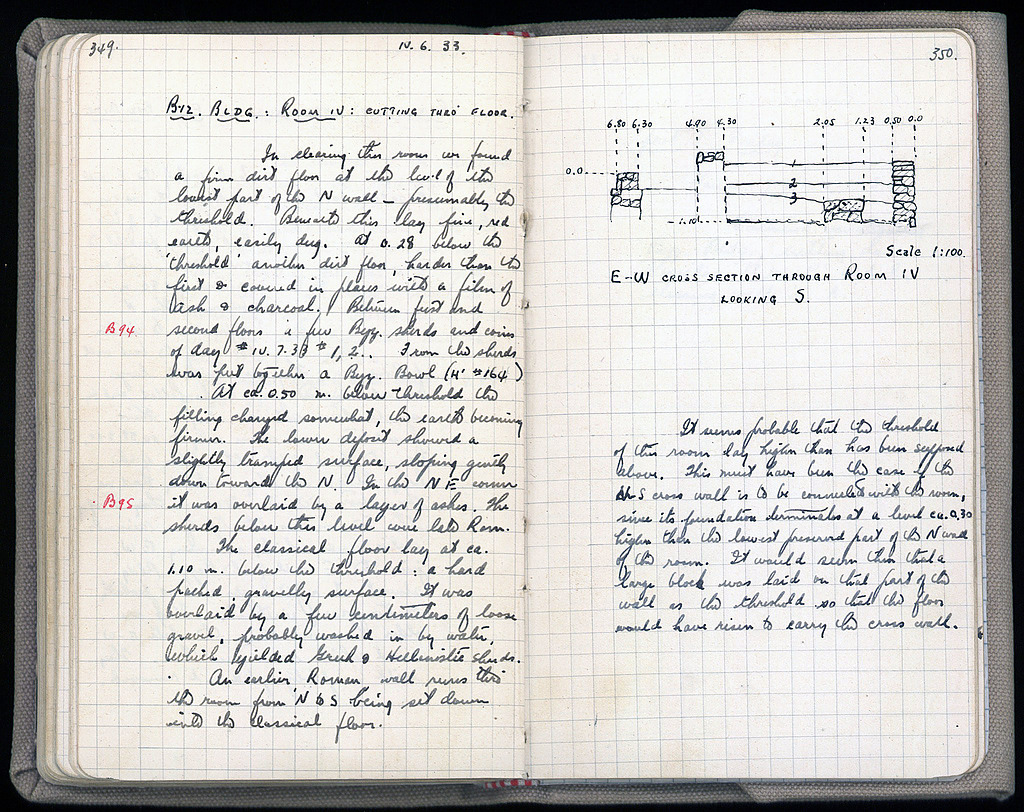 349.
IV. 6. 33.
BYZ. BLDG.: ROOM IV: CUTTING THRO' FLOOR.
In clearing this room we found
a firm dirt floor at the level of the
lowest part of the N wall – presumably the
threshold. Beneath this lay fine, red
earth, easily dug. At 0.28 below the
'threshold' another dirt floor, harder than the
first & covered in places with a film of
ash & charcoal. Between first and
B94
second floors a few Byz. sherds and coins
of day # IV. 7. 33 # 1, 2.. From the sherds
was put together a Byz. Bowl (H' #164)
At ca. 0.50 m. below threshold the
filling changed somewhat, the earth becoming
firmer. The lower deposit showed a
slightly tramped surface, sloping gently
down towards the N. In the NE corner
B95
it was overlaid by a layer of ashes. The
sherds below this level were late Rom.
The classical floor lay at ca.
1.10 m. below the threshold: a hard
packed, gravelly surface. It was
overlaid by a few centimeters of loose
gravel, probably washed in by water,
which yielded Greek & Hellenistic sherds.
An earlier Roman wall runs thro
the room from N to S being set down
into the classical floor.
350.
6.80 6.30 4.90 4.30 2.05 1.23 0.50 0.0
0.0
1
2
3
-1.10
Scale 1:100.
E–W CROSS SECTION THROUGH ROOM IV
LOOKING S.
It seems probable that the threshold
of this room lay higher than has been supposed
above. This must have been the case if the
N-S cross wall is to be connected with the room,
since its foundation terminates at a level ca. 0.30
higher than the lowest preserved part of the N wall
of the room. It would seem then that a
large block was laid on that part of the
wall as the threshold so that the floor
would have risen to carry the cross wall.